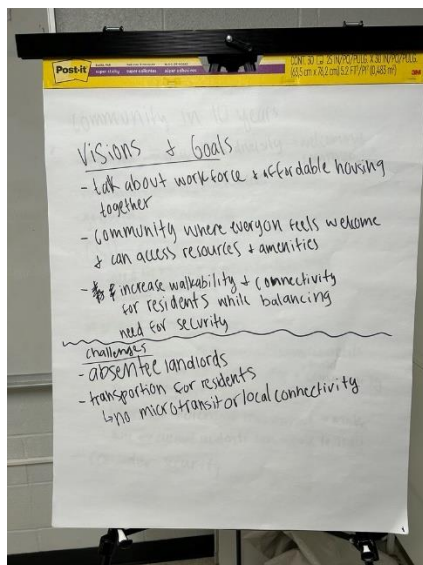 Post-it
CONT. 30
(63,5 cm x 76,2 cm) 5.2 FT²/PI² (0,483 m²)
3M
Visions & Goals
- talk about workforce & affordable housing
together
- community where everyon feels welcome
& can access resources & amenities
- increase walkability & connectivity
for residents while balancing
need for security
Challenges
- absentee landlords
- transportion for residents
↳ no microtransit or local connectivity